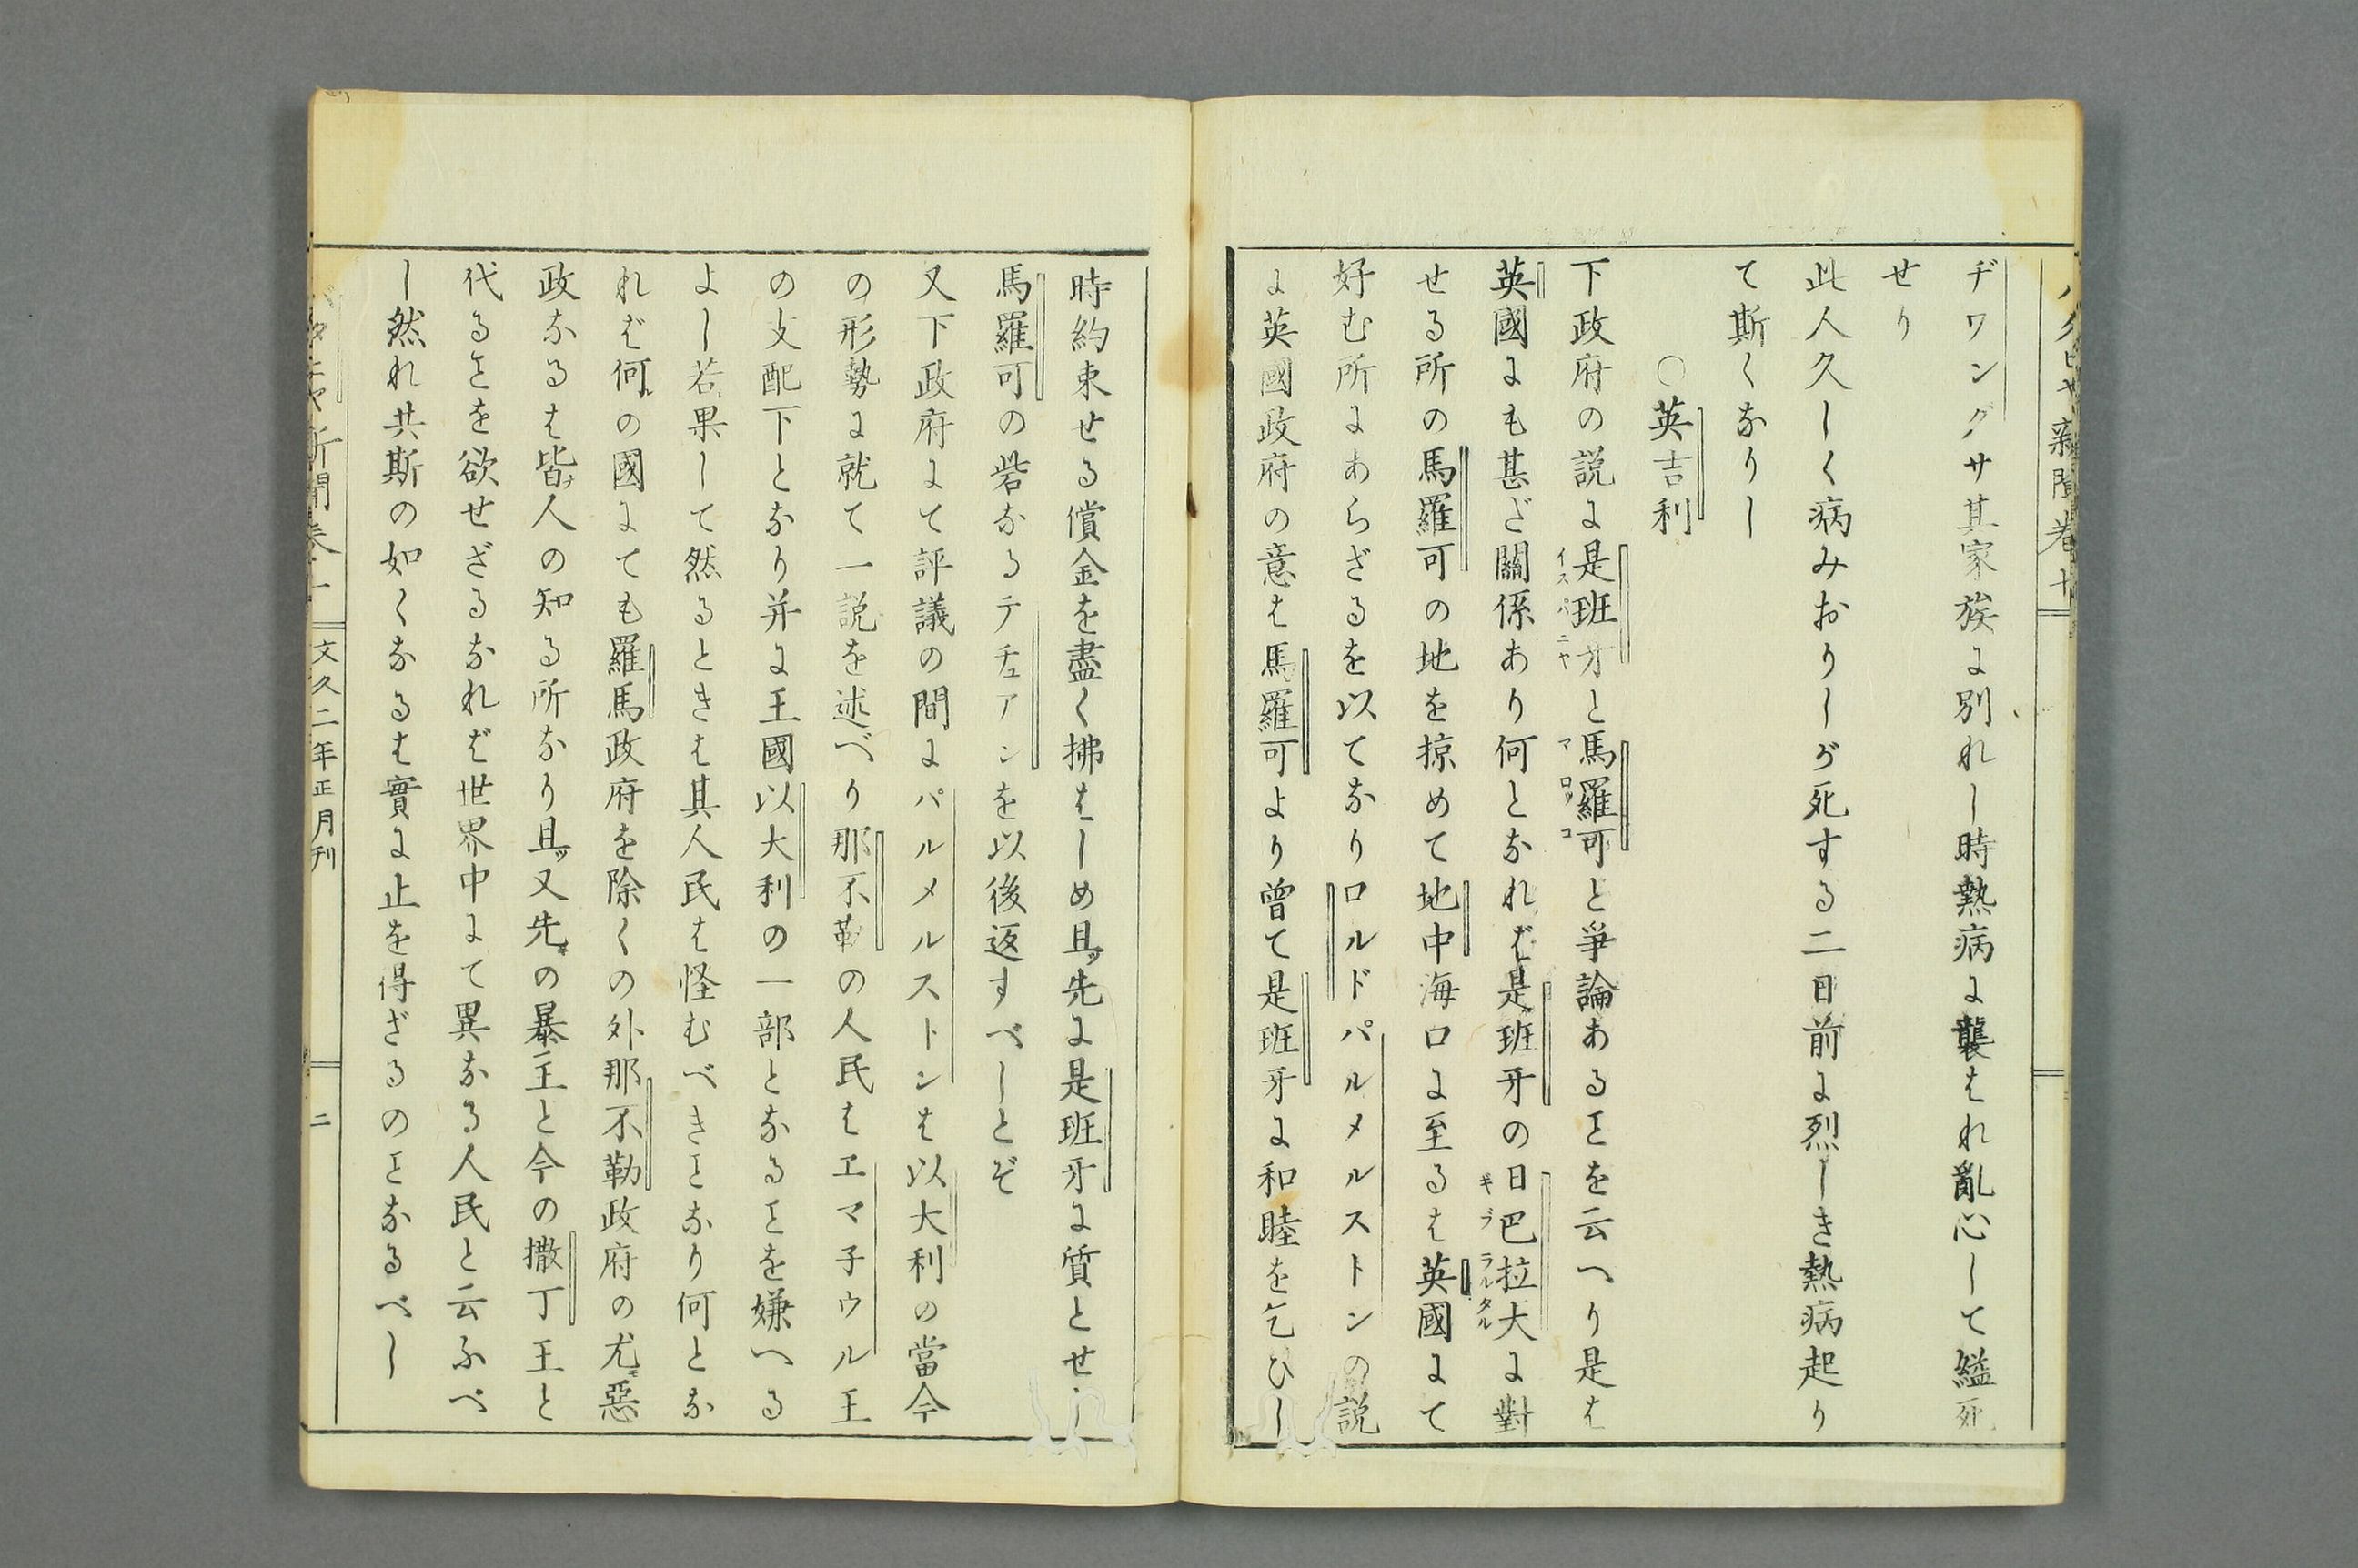 バタヒヤ新聞卷十
ヂワングサ其家族に別れし時熱病に襲はれ亂心して縊死
せり
此人久しく病みおりしが死する二日前に烈しき熱病起り
て斯くなりし
○英吉利
下政府の説に是班牙と馬羅可と爭論あるヿを云へり是は
イスパニヤ
マロツコ
英國にも甚だ關係あり何となれば是班牙の日巴拉大に對
ギブラルタル
せる所の馬羅可の地を掠めて地中海口に至るは英國にて
好む所にあらざるを以てなりロルドパルメルストンの説
に英國政府の意は馬羅可より曾て是班牙に和睦を乞ひし
時約束せる償金を盡く拂はしめ且ツ先に是班牙に質とせし
馬羅可の砦なるテチュアンを以後返すべしとぞ
又下政府にて評議の間にパルメルストンは以大利の當今
の形勢に就て一説を述べり那不勒の人民はエマ子ウル王
の支配下となり并に王國以大利の一部となるヿを嫌へる
よし若果して然るときは其人民は怪むべきヿなり何とな
れば何の國にても羅馬政府を除くの外那不勒政府の尤惡
政なるは皆人の知る所なり且ツ又先キの暴王と今の撒丁王と
代るヿを欲せざるなれば世界中にて異なる人民と云ふべ
し然れ共斯の如くなるは實に止を得ざるのヿなるべし
バタヒヤ新聞卷十
文久二年正月刊
二